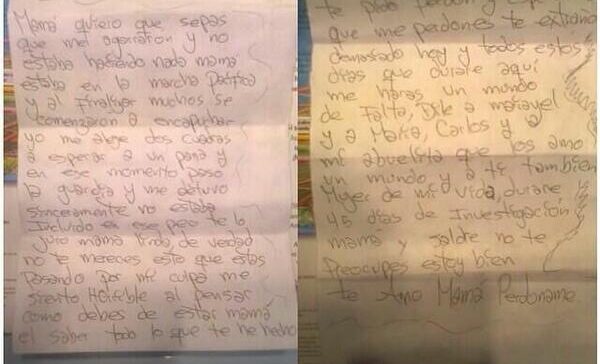 Mama quiero que sepas
que me agarraron y no
estaba haciendo nada mamá
estaba en la marcha Pacifica
y al Finalizar muchos se
comenzaron a encapuchar
yo me aleje dos cuadras
a esperar a un pana y
en ese momento paso
la guardia y me detuvo
sinceramente no estaba
Incluido en ese peo te lo
juro mama linda, de verdad
no te mereces esto que estas
Pasando Por mi culpa me
siento Horrible al pensar
como debes de estar mamá
el saber todo lo que te he hecho
te pido perdon y
que me perdones te extraño
demasiado hoy y todos estos
dias que durare aquí
me haras un mundo
de Falta, Dile a
y a Maria, Carlos y a
mi abuelita que los amo
un mundo y a ti tambien
Mujer de mi vida, durare
45 dias de Investigación
mamá y saldre no te
Preocupes estoy bien
te Amo Mamá Perdoname